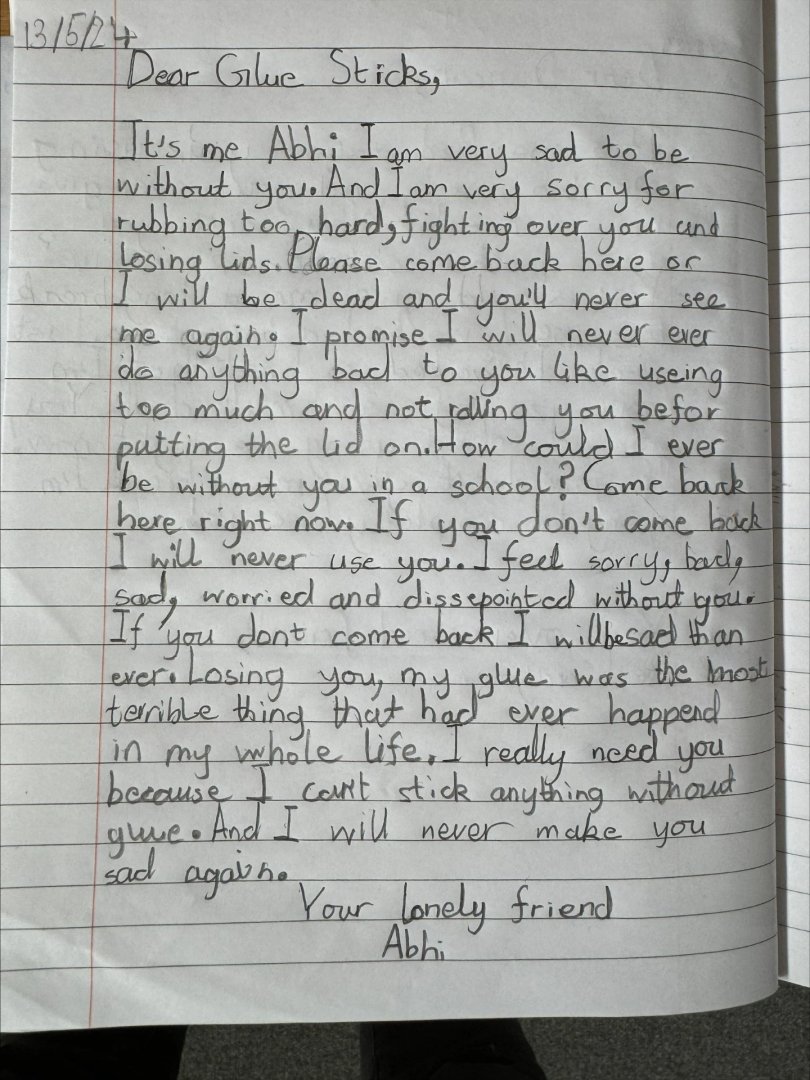 13/5/24
Dear Glue Sticks,
It's me Abhi I am very sad to be
without you. And I am very sorry for
rubbing too hard, fighting over you and
losing lids. Please come back here or
I will be dead and you'll never see
me again. I promise I will never ever
do anything bad to you like useing
too much and not rolling you befor
putting the lid on. How could I ever
be without you in a school? Come back
here right now. If you don't come back
I will never use you. I feel sorry, bad,
sad, worried and dissepointed without you.
If you dont come back I will be sad than
ever. Losing you, my glue was the most
terrible thing that had ever happend
in my whole life. I really need you
because I can't stick anything without
glue. And I will never make you
sad again.
Your lonely friend
Abhi